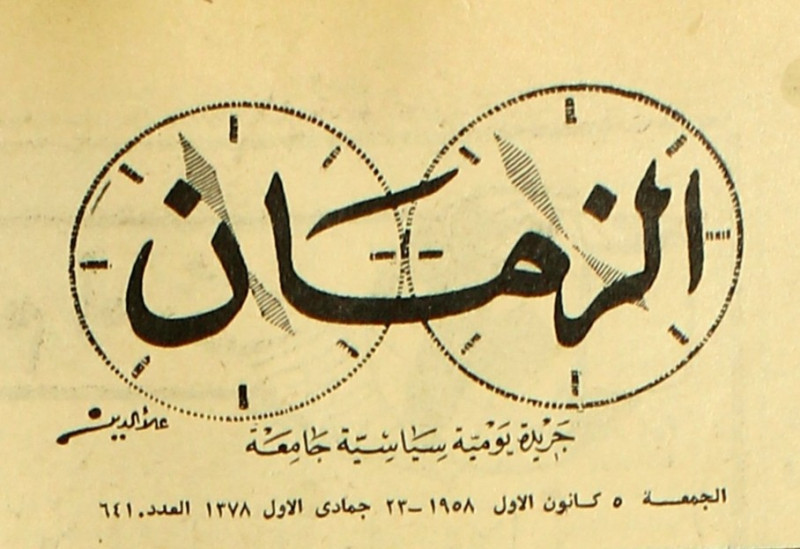 الزمان
علاءالدين
جريدة يومية سياسية جامعة
الجمعة ٥ كانون الاول ١٩٥٨ -٢٣ جمادى الاول ١٣٧٨ العدد.٦٤١